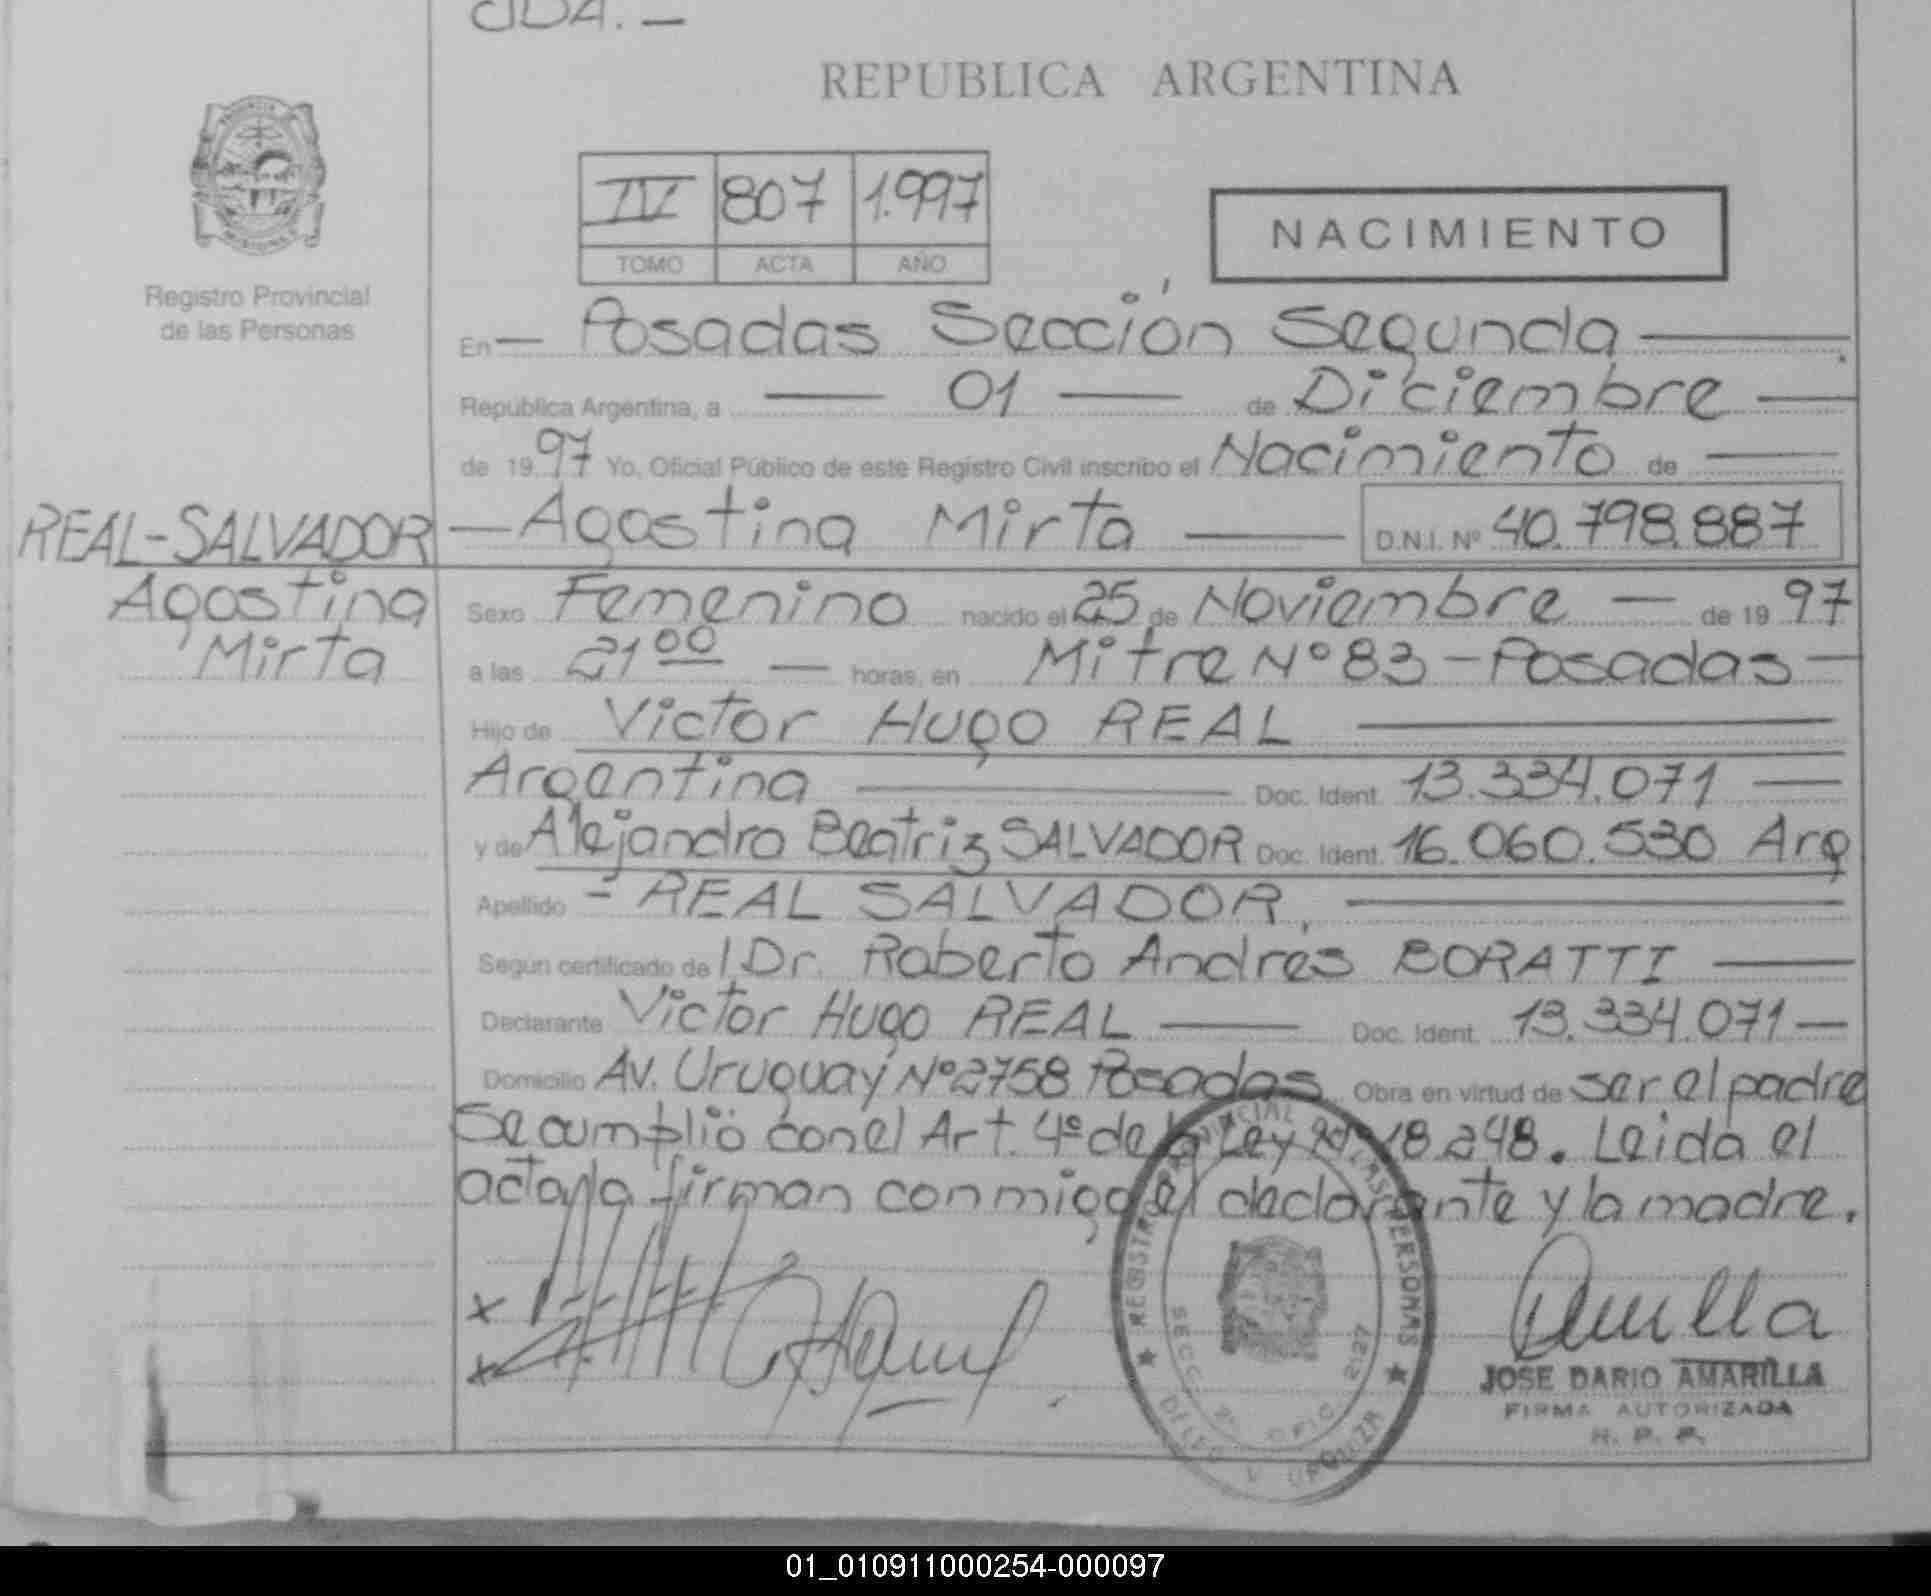 CJDA. —
REPUBLICA ARGENTINA
IV 807 1.997
TOMO ACTA AÑO
NACIMIENTO
Registro Provincial
de las Personas
En — Posadas Sección Segunda —
República Argentina, a — 01 — de Diciembre —
de 1997 Yo, Oficial Público de este Registro Civil inscribo el Nacimiento de —
REAL-SALVADOR — Agostina Mirta — D.N.I. Nº 40.798.887
Agostina
Mirta
Sexo Femenino nacido el 25 de Noviembre — de 1997
a las 21 00 — horas, en Mitre Nº 83 - Posadas —
Hijo de Victor Hugo REAL —
Argentina — Doc. Ident. 13.334.071 —
y de Alejandra Beatriz SALVADOR Doc. Ident. 16.060.530 Arg
Apellido - REAL SALVADOR, —
Según certificado de l Dr. Roberto Andrés BORATTI —
Declarante Victor Hugo REAL — Doc. Ident. 13.334.071 —
Domicilio Av. Uruguay Nº 2758 Posadas Obra en virtud de ser el padre
Se cumplió con el Art. 4º de la Ley Nº 18.248. Leida el
acta la firman conmigo el declarante y la madre.
REGISTRO PROVINCIAL DE LAS PERSONAS
SECC. 2ª OFIC. 2127
JOSE DARIO AMARILLA
FIRMA AUTORIZADA
R. P. P.
01_010911000254-000097